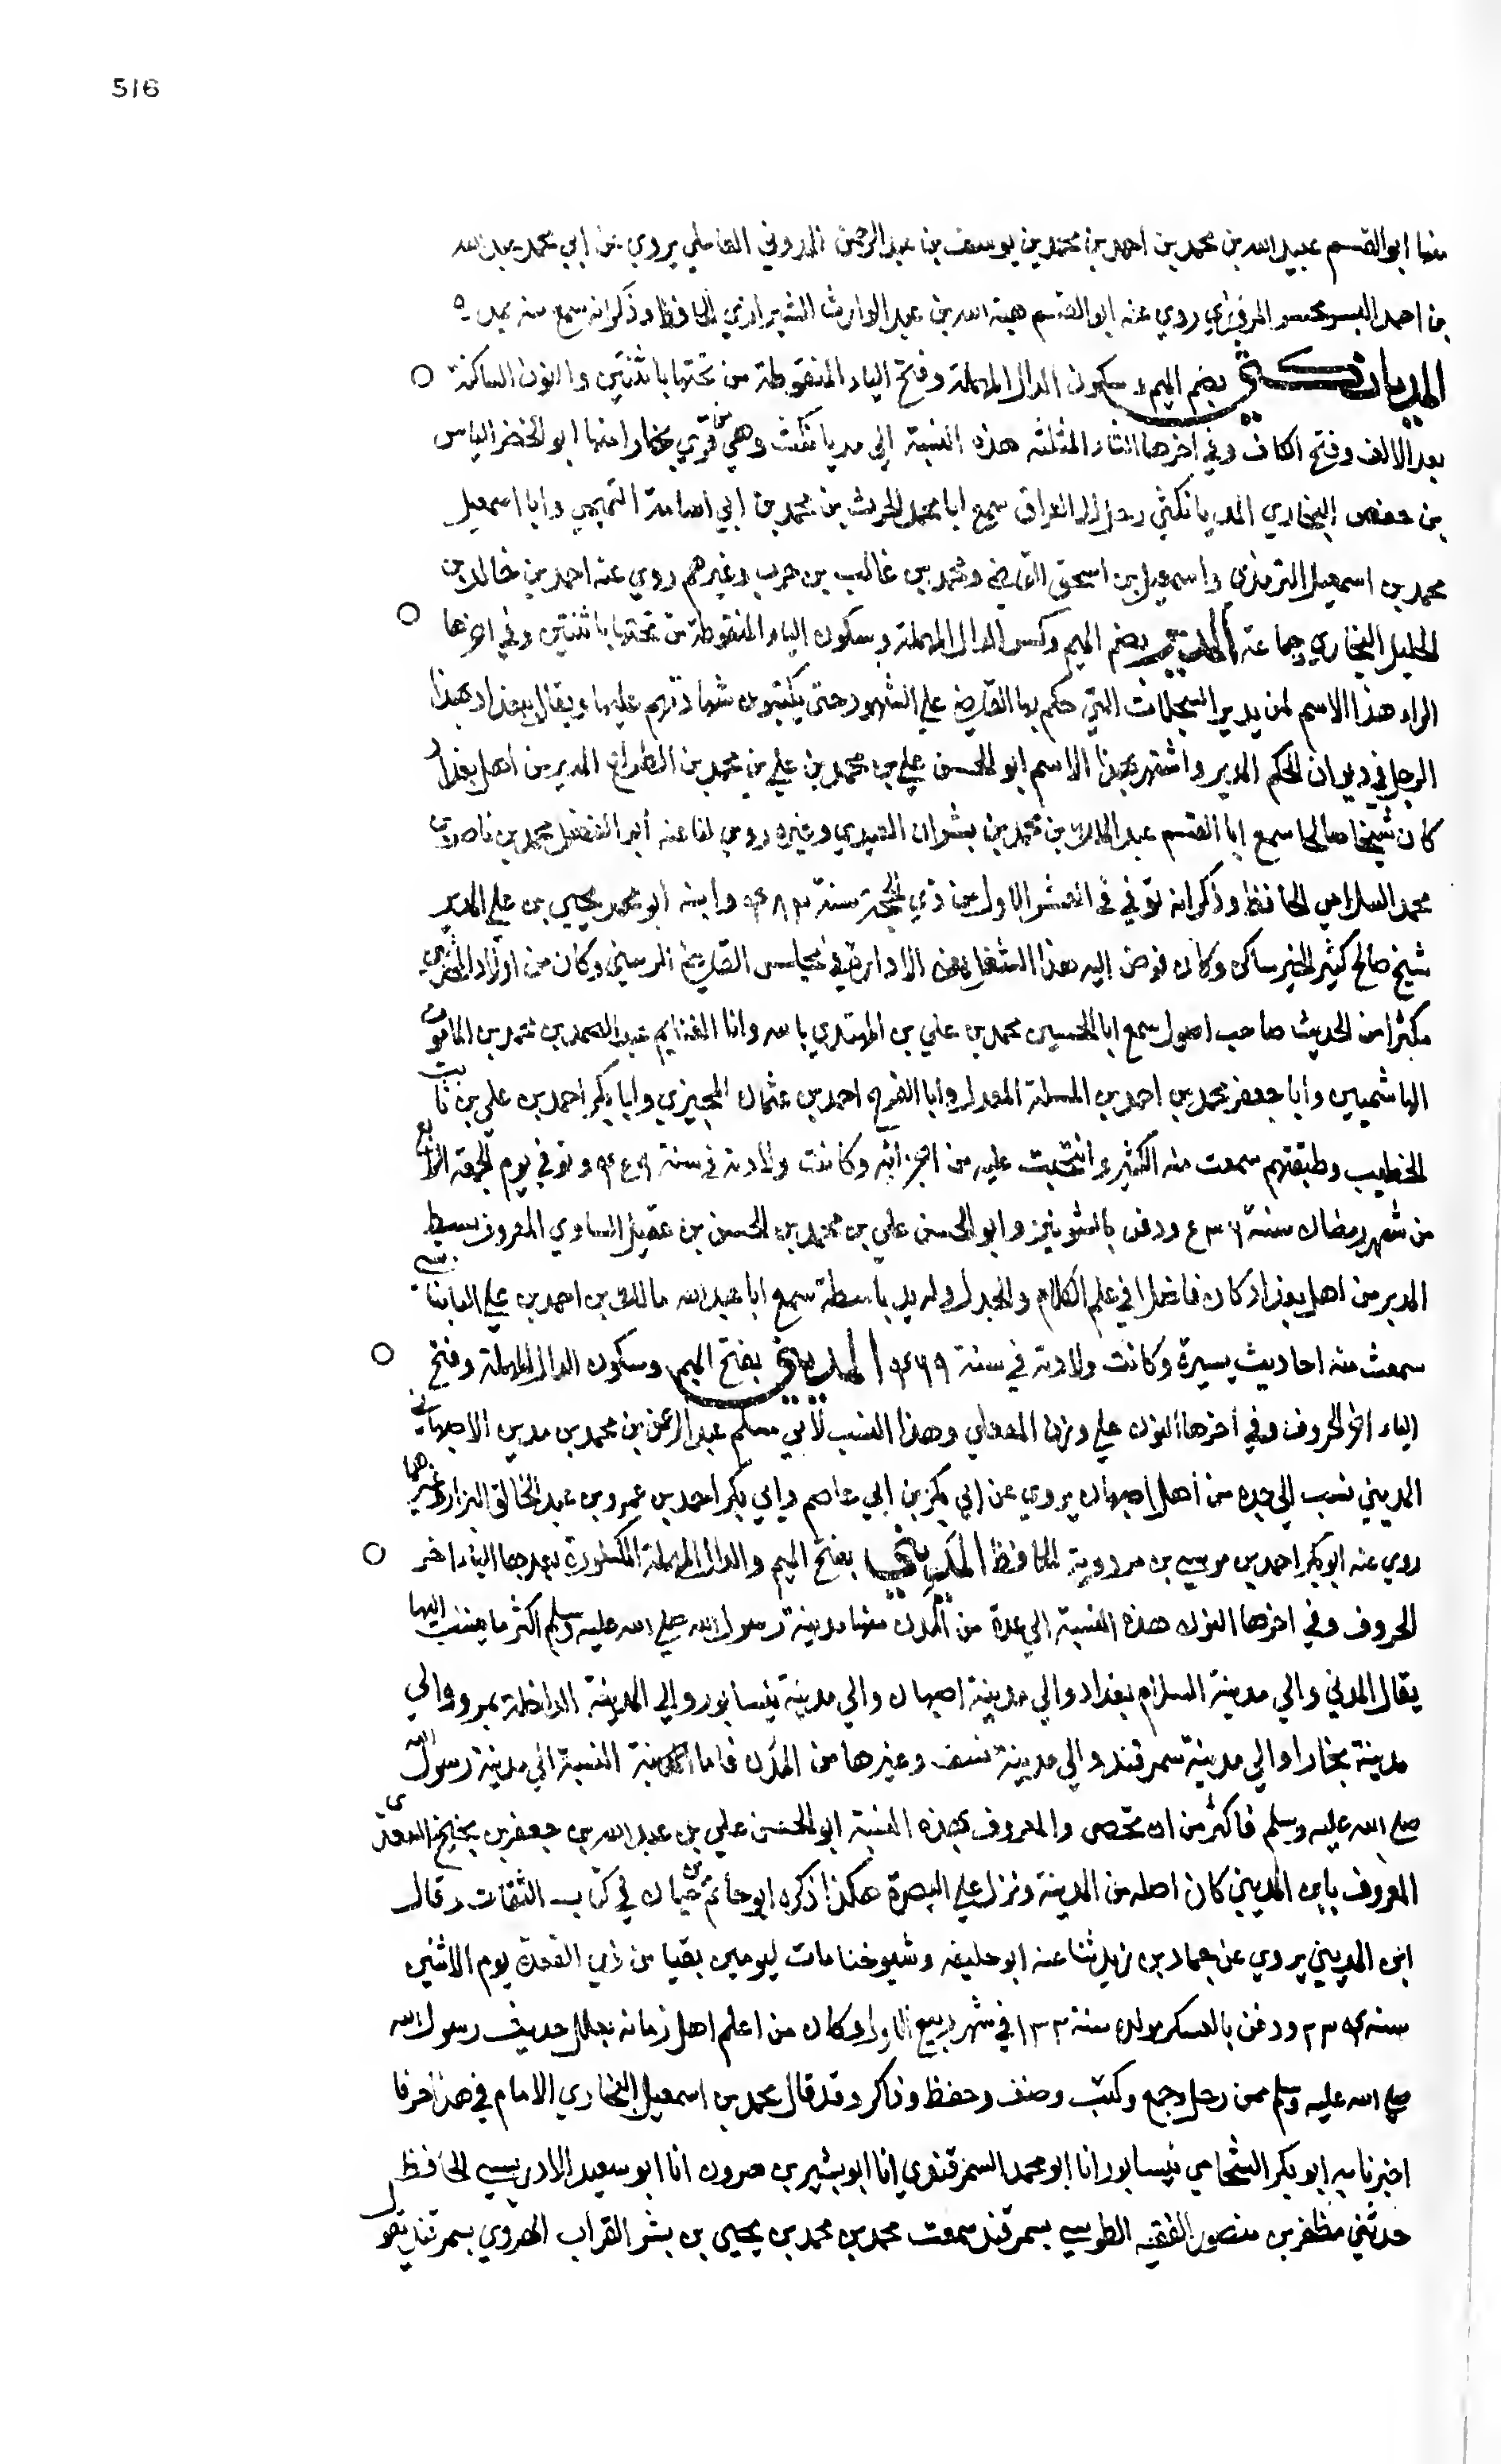 516
منها ابو القسم عبيد الله بن محمد بن احمد بن محمد بن يوسف بن عبد الرحمن المروني القاضلي يروي عن ابي محمد عبد الله
بن احمد المرفزي روي عنه ابو القسم هبة الله بن عبد الوارث الشيرازي الحافظ وذكر انه سمع منه
المديانكثي بضم الميم وسكون الدال المهملة وفتح الياء المنقوطة من تحتها باثنتين والنون الساكنة
بعد الالف وفتح الكاف وفي اخرها الثاء المثلثه هذه النسبة الي مديانكث وهي من قري بخارا منها ابو الخضر الياس
بن حفص البخاري المديانكثي رحل الي العراق سمع ابا محمد الحرث بن محمد بن ابي اسامة التميمي وابا اسمعيل
محمد بن اسمعيل الترمذي واسمعيل بن اسحق القاضي ومحمد بن غالب بن حرب وغيرهم روي عنه احمد بن خالد بن
الخليل البخاري وجماعة المدير بضم الميم وكسر الدال المهملة وسكون الياء المنقوطة من تحتها باثنتين وفي اخرها
الراء هذا الاسم لمن يدير السجلات التي حكم بها القاضي علي الشهود حتي يكتبون شهادتهم عليها ويقال ببغداد بهذا
الرجل في ديوان الحكم المدير واشتهر بهذا الاسم ابو الحسن علي بن محمد بن علي بن محمد بن الطراح المدير من اهل بغداد
كان شيخا صالحا سمع ابا القسم عبد الملك بن محمد بن بشران العبدي وغيره روي لنا عنه أبو الفضل محمد بن ناصر بن
محمد السلامي الحافظ وذكر انه توفي في العشر الاول من ذي الحجة سنة وابنه ابو محمد يحيي بن علي المدير
شيخ صالح كثير الخير ساكن وكان فوض اليه هذا الشغل بعض الادارة في مجلس القاضي الرسني وكان من اولاد المحدثين
مكثرا من الحديث صاحب اصول سمع ابا الحسين محمد بن علي بن المهتدي بالله وانا الغنايم عبد الصمد بن محمد بن المامون
الهاشميين وابا جعفر محمد بن احمد بن المسلمة المعدل وابا الفرج احمد بن عثمان المخبزي وابا بكر احمد بن علي بن ثابت
الخطيب وطبقتهم سمعت منه الكثير وانتخبت عليه من اجزائه وكانت ولادته في سنة وتوفي يوم الجمعة الرابع
من شهر رمضان سنة ودفن بالشونيز وابو الحسن علي بن محمد بن الحسن بن عقيل الساوي المعروف بسبط
المدير من اهل بغداد كان فاضلا في علم الكلام والجدل وله يد باسطة سمع ابا عبد الله مالك بن احمد بن علي البانياسي
سمعت منه احاديث يسيرة وكانت ولادته في سنة المديني بفتح الميم وسكون الدال المهملة وفتح
الياء اخر الحروف وفي اخرها النون علي وزن المفعلي وهذا النسب لأبي مسلم عبد الرحمن بن محمد بن مدين الاصبهاني
المديني نسب الي جده من أهل اصبهان يروي عن ابي بكر بن ابي عاصم وابي بكر احمد بن عمرو بن عبد الخالق البزار وغيرهما
روي عنه ابو بكر احمد بن موسي بن مردويه الحافظ المديني بفتح الميم والدال المهملة المكسورة بعدها الياء اخر
الحروف وفي اخرها النون هذه النسبة الي عدة من المدن منها مدينة رسول الله صلي الله عليه وسلم اكثر ما ينسب اليها
يقال المدني والي مدينة السلام بغداد والي مدينة اصبهان والي مدينة نيسابور والي المدينة الداخلة بمرو والي
مدينة بخارا والي مدينة سمرقند والي مدينة نسف وغيرها من المدن فاما النسبة الي مدينة رسول الله
صلي الله عليه وسلم فاكثر من ان تحصي والمعروف بهذه النسبة ابو الحسن علي بن عبد الله بن جعفر بن نجيح السعدي
المعروف بابن المديني كان اصله من المدينة ونزل علي البصرة هكذا ذكره ابو حاتم بن حبان في كتاب الثقات وقال
ابن المديني يروي عن حماد بن زيد ثنا عنه ابو خليفه وشيوخنا مات ليومين بقيا من ذي القعدة يوم الاثنين
سنة ودفن بالعسكر مولده سنة في شهر ربيع الاول وكان من اعلم اهل زمانه بعلل حديث رسول الله
صلي الله عليه وسلم ممن رحل وجمع وكتب وصنف وحفظ وذاكر وقد قال محمد بن اسمعيل البخاري الامام في هذا حرفا
اخبرنا به ابو بكر الشحامي نيسابور انا ابو محمد السمرقندي انا ابو بشر بن هرون انا ابو سعيد الادريسي الحافظ
حدثني مظفر بن منصور الفقيه الطوسي بسمرقند سمعت محمد بن محمد بن يحيي بن بشر القراب الهروي بسمرقند يقول